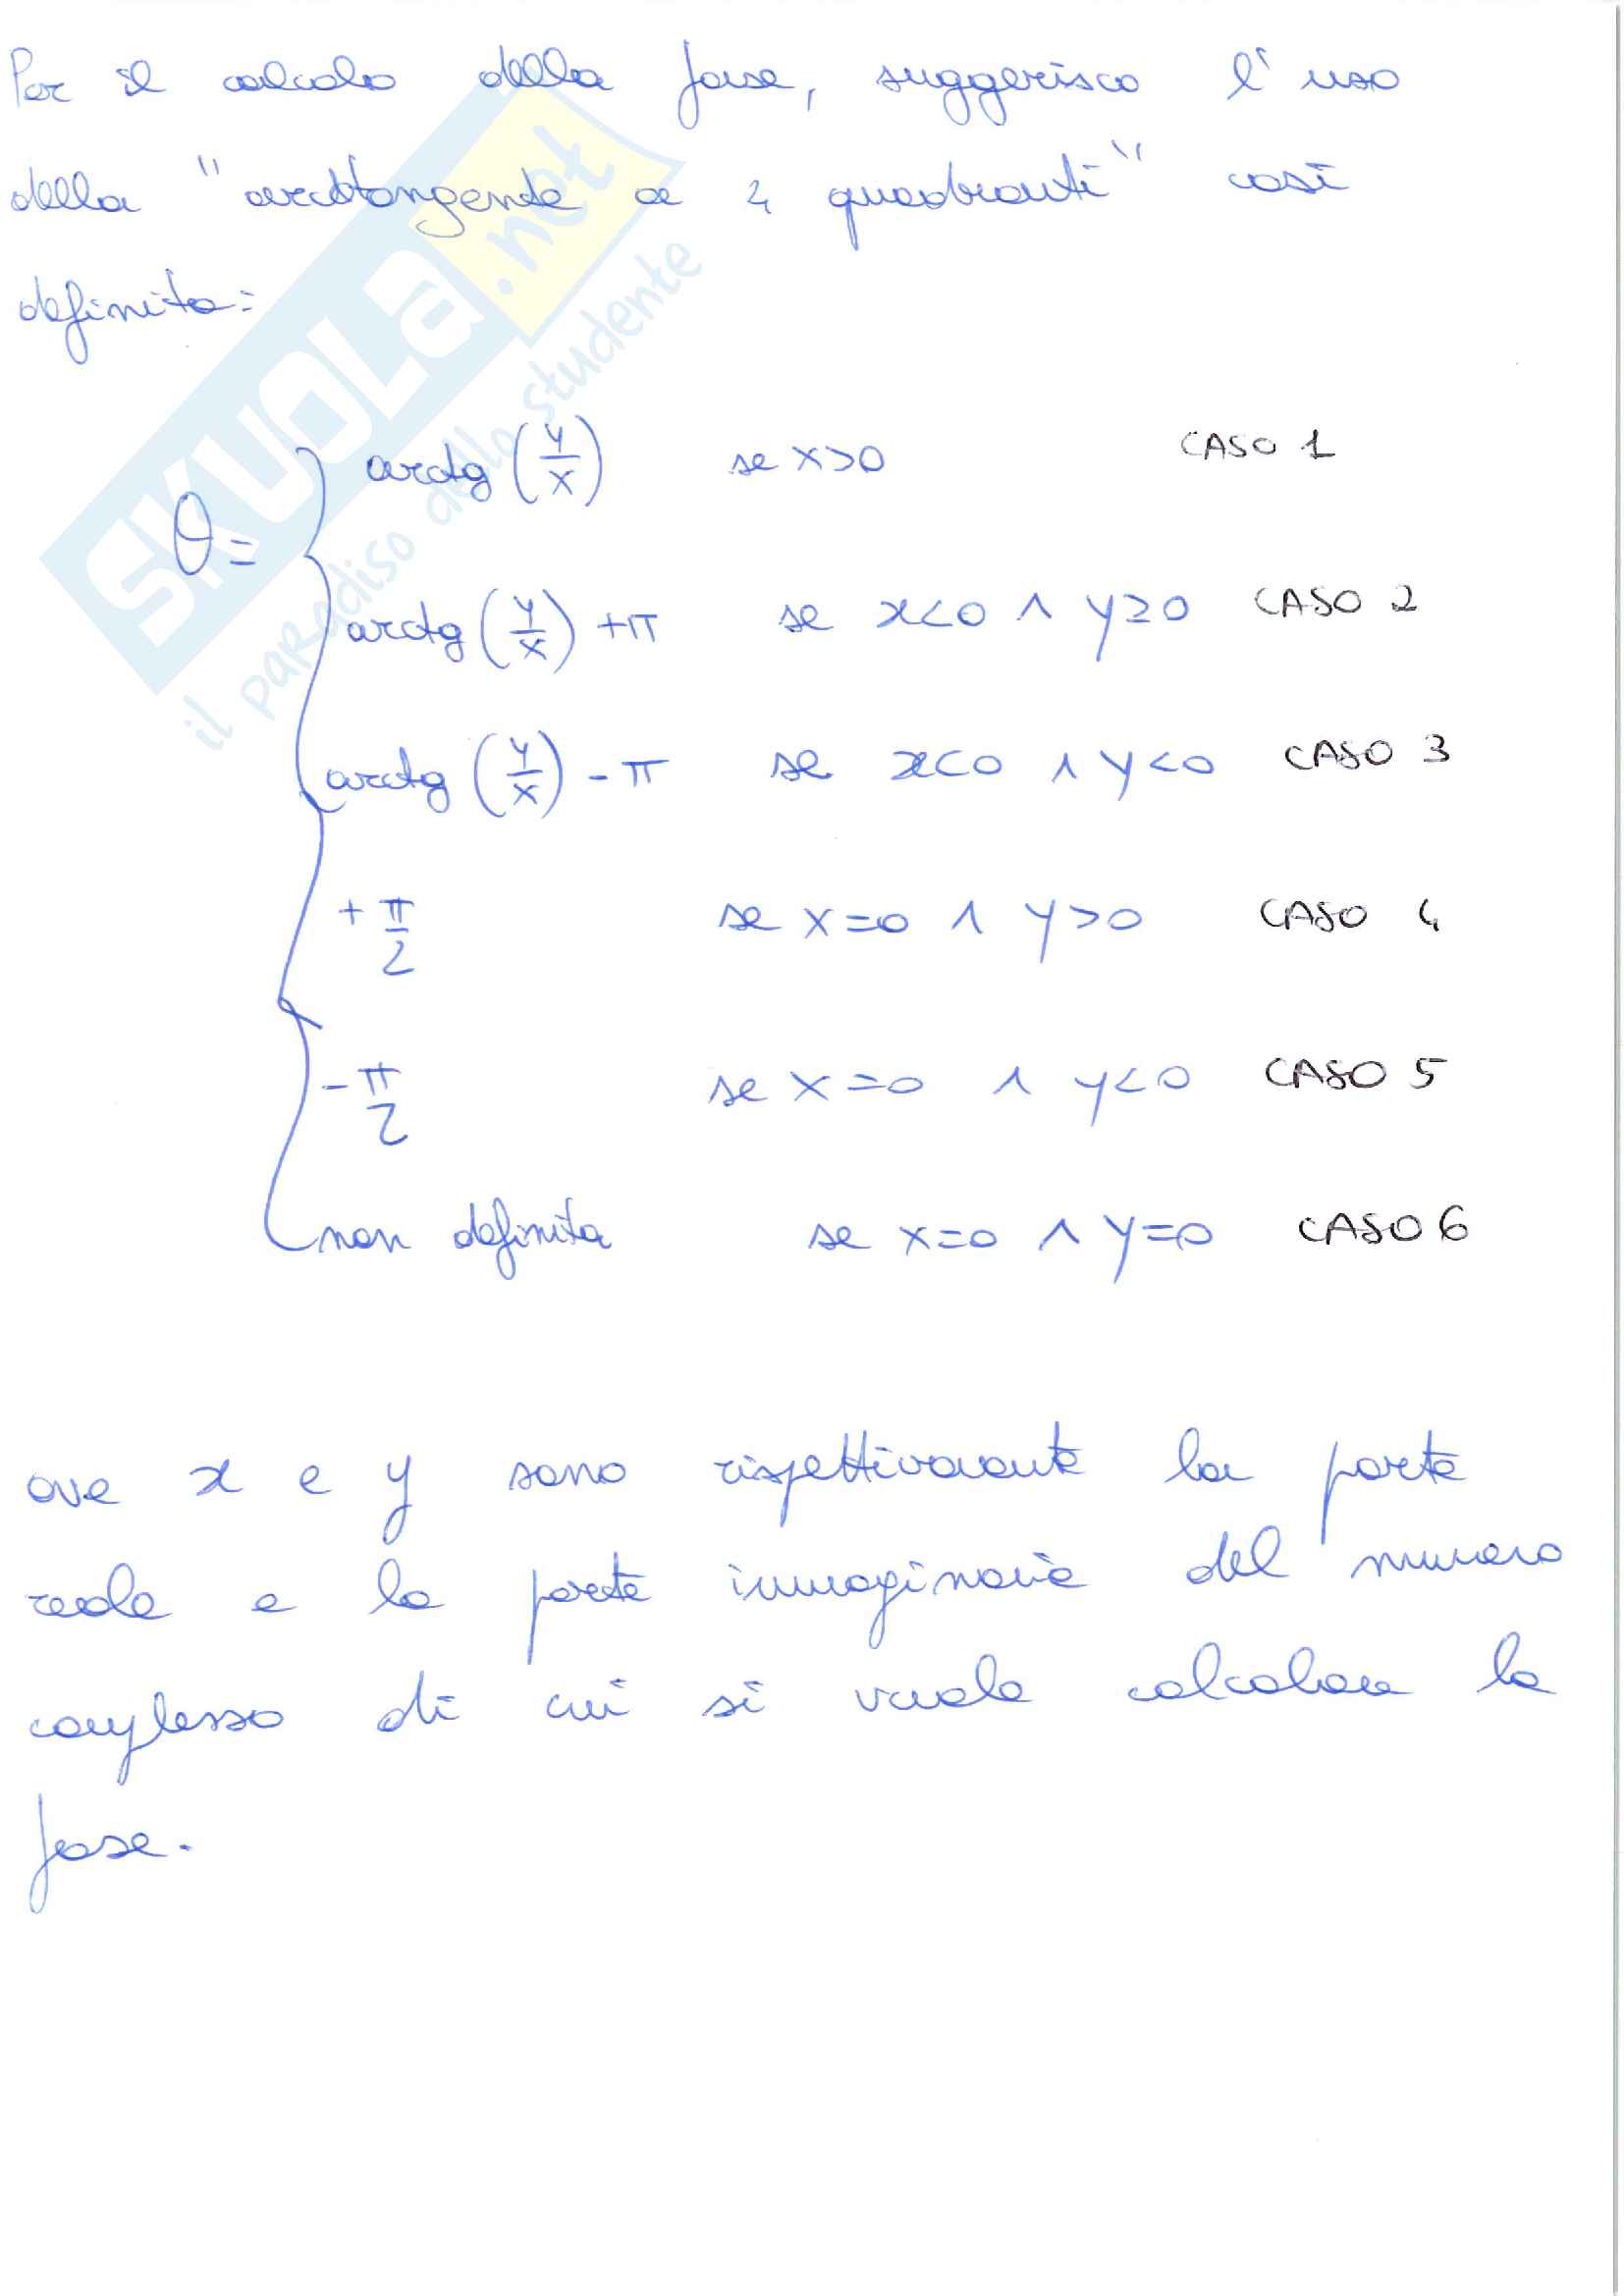 Per il calcolo della fase, suggerisco l'uso
della "arcotangente a 4 quadranti" così
definita:
θ = { arctg (y/x) se x>0 CASO 1
arctg (y/x) +π se x<0 ∧ y≥0 CASO 2
arctg (y/x) - π se x<0 ∧ y<0 CASO 3
+ π/2 se x=0 ∧ y>0 CASO 4
- π/2 se x=0 ∧ y<0 CASO 5
non definita se x=0 ∧ y=0 CASO 6
ove x e y sono rispettivamente la parte
reale e la parte immaginaria del numero
complesso di cui si vuole calcolare la
fase.
SKUOLA.net
il paradiso dello studente